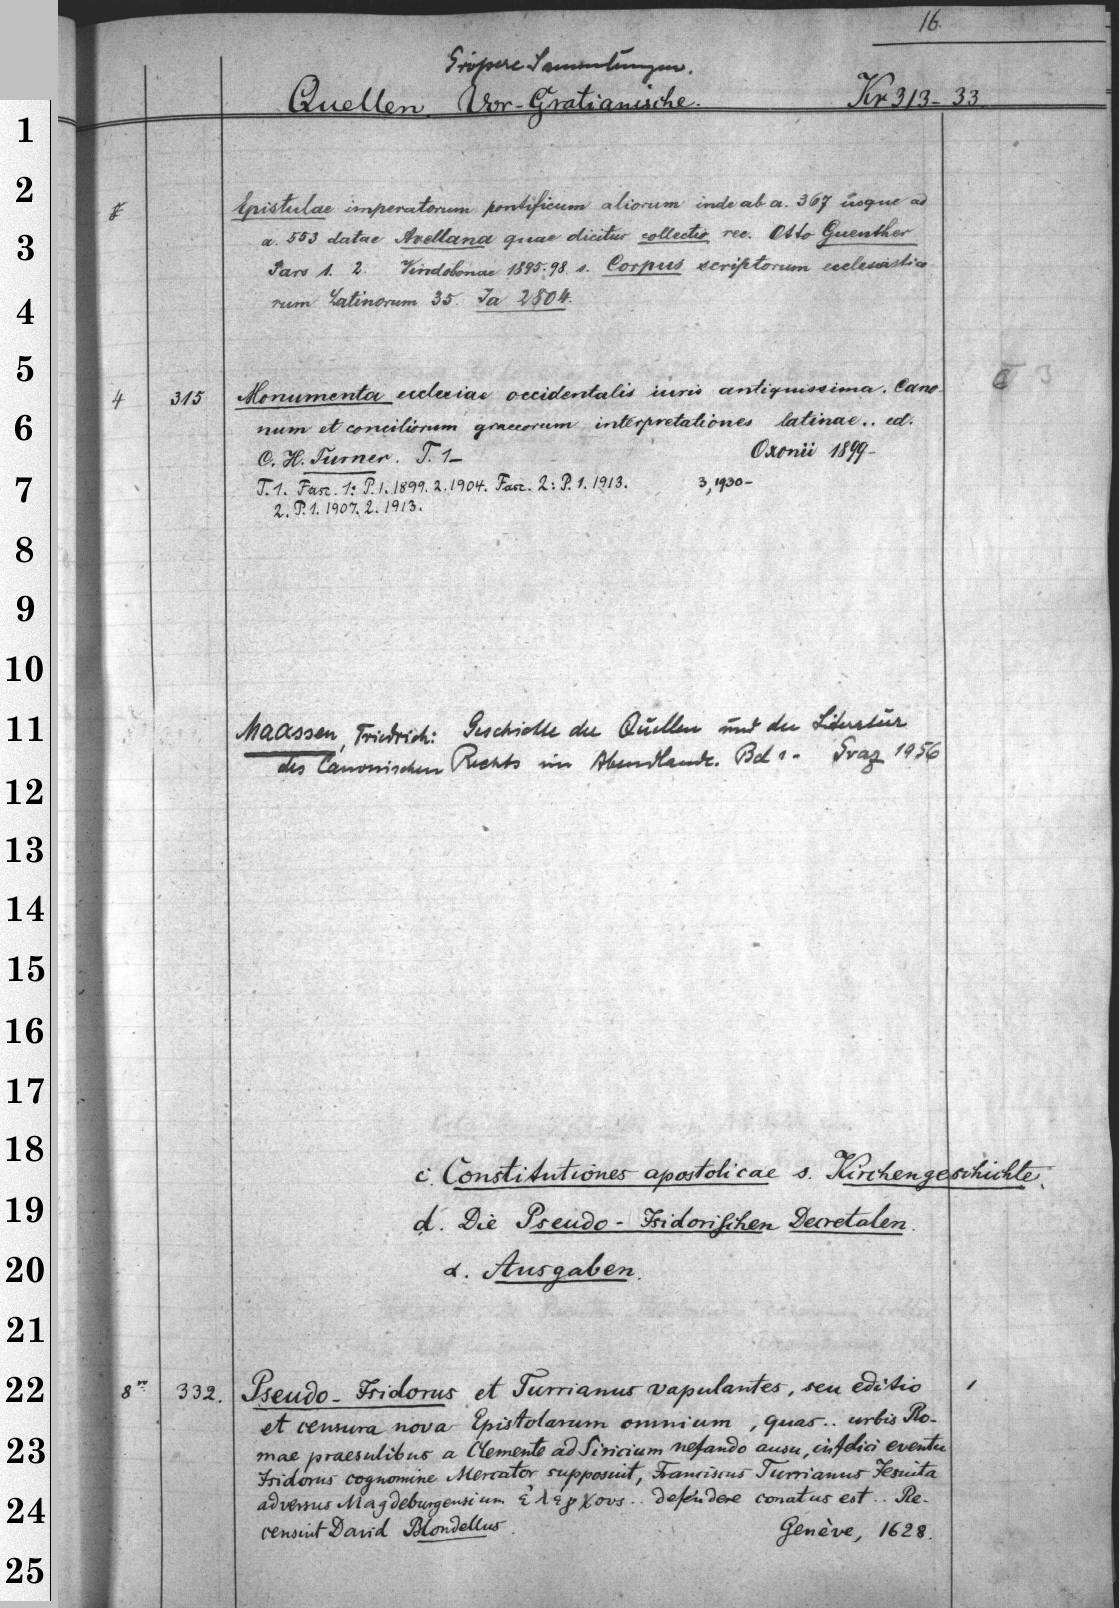 16.
Größere Sammlungen.
Quellen. Vor-Gratianische. Kr 313-33
Epistulae imperatorum pontificum aliorum inde ab a. 367 usque ad
a. 553 datae Avellana quae dicitur collectio rec. Otto Guenther
Pars 1. 2. Vindobonae 1895.98 s. Corpus scriptorum ecclesiastico
rum Latinorum 35. Ia 2804.
4 315 Monumenta ecclesiae occidentalis iuris antiquissima. Cano-
num et conciliorum graecorum interpretationes latinae.. ed.
C. H. Turner. T. 1- Oxonii 1899-
T. 1. Fasc. 1: P. 1. 1899. 2. 1904. Fasc. 2: P. 1. 1913. 3, 1930-
2. P. 1. 1907. 2. 1913.
Maassen, Friedrich: Geschichte der Quellen und der Literatur
des Canonischen Rechts im Abendlande. Bd 1. Graz 1956
c. Constitutiones apostolicae s. Kirchengeschichte.
d. Die Pseudo-Isidorischen Decretalen.
α. Ausgaben.
8vo 332. Pseudo-Isidorus et Turrianus vapulantes, seu editio 1
et censura nova Epistolarum omnium, quas.. urbis Ro-
mae praesulibus a Clemente ad Siricium nefando ausu, infelici eventu
Isidorus cognomine Mercator supposuit, Franciscus Turrianus Jesuita
adversus Magdeburgensium ἐλεγχους.. defendere conatus est.. Re-
censuit David Blondellus. Genève, 1628.
1
2
3
4
5
6
7
8
9
10
11
12
13
14
15
16
17
18
19
20
21
22
23
24
25